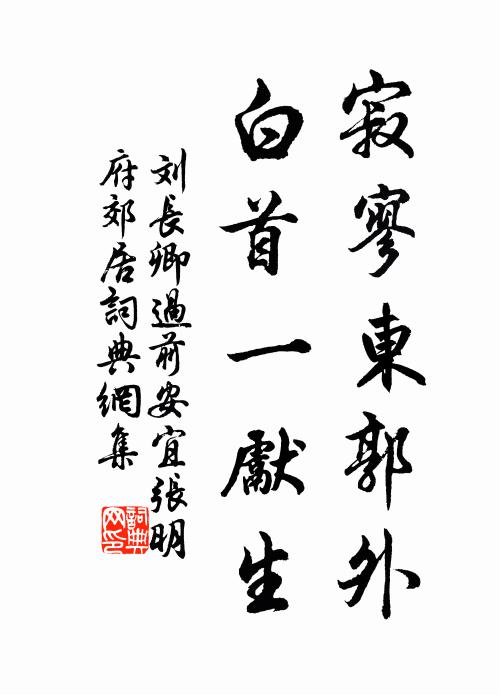 寂寥東郭外
白首一獻生
刘長卿過前安宜張明
府郊居詞典網集
詞典网印